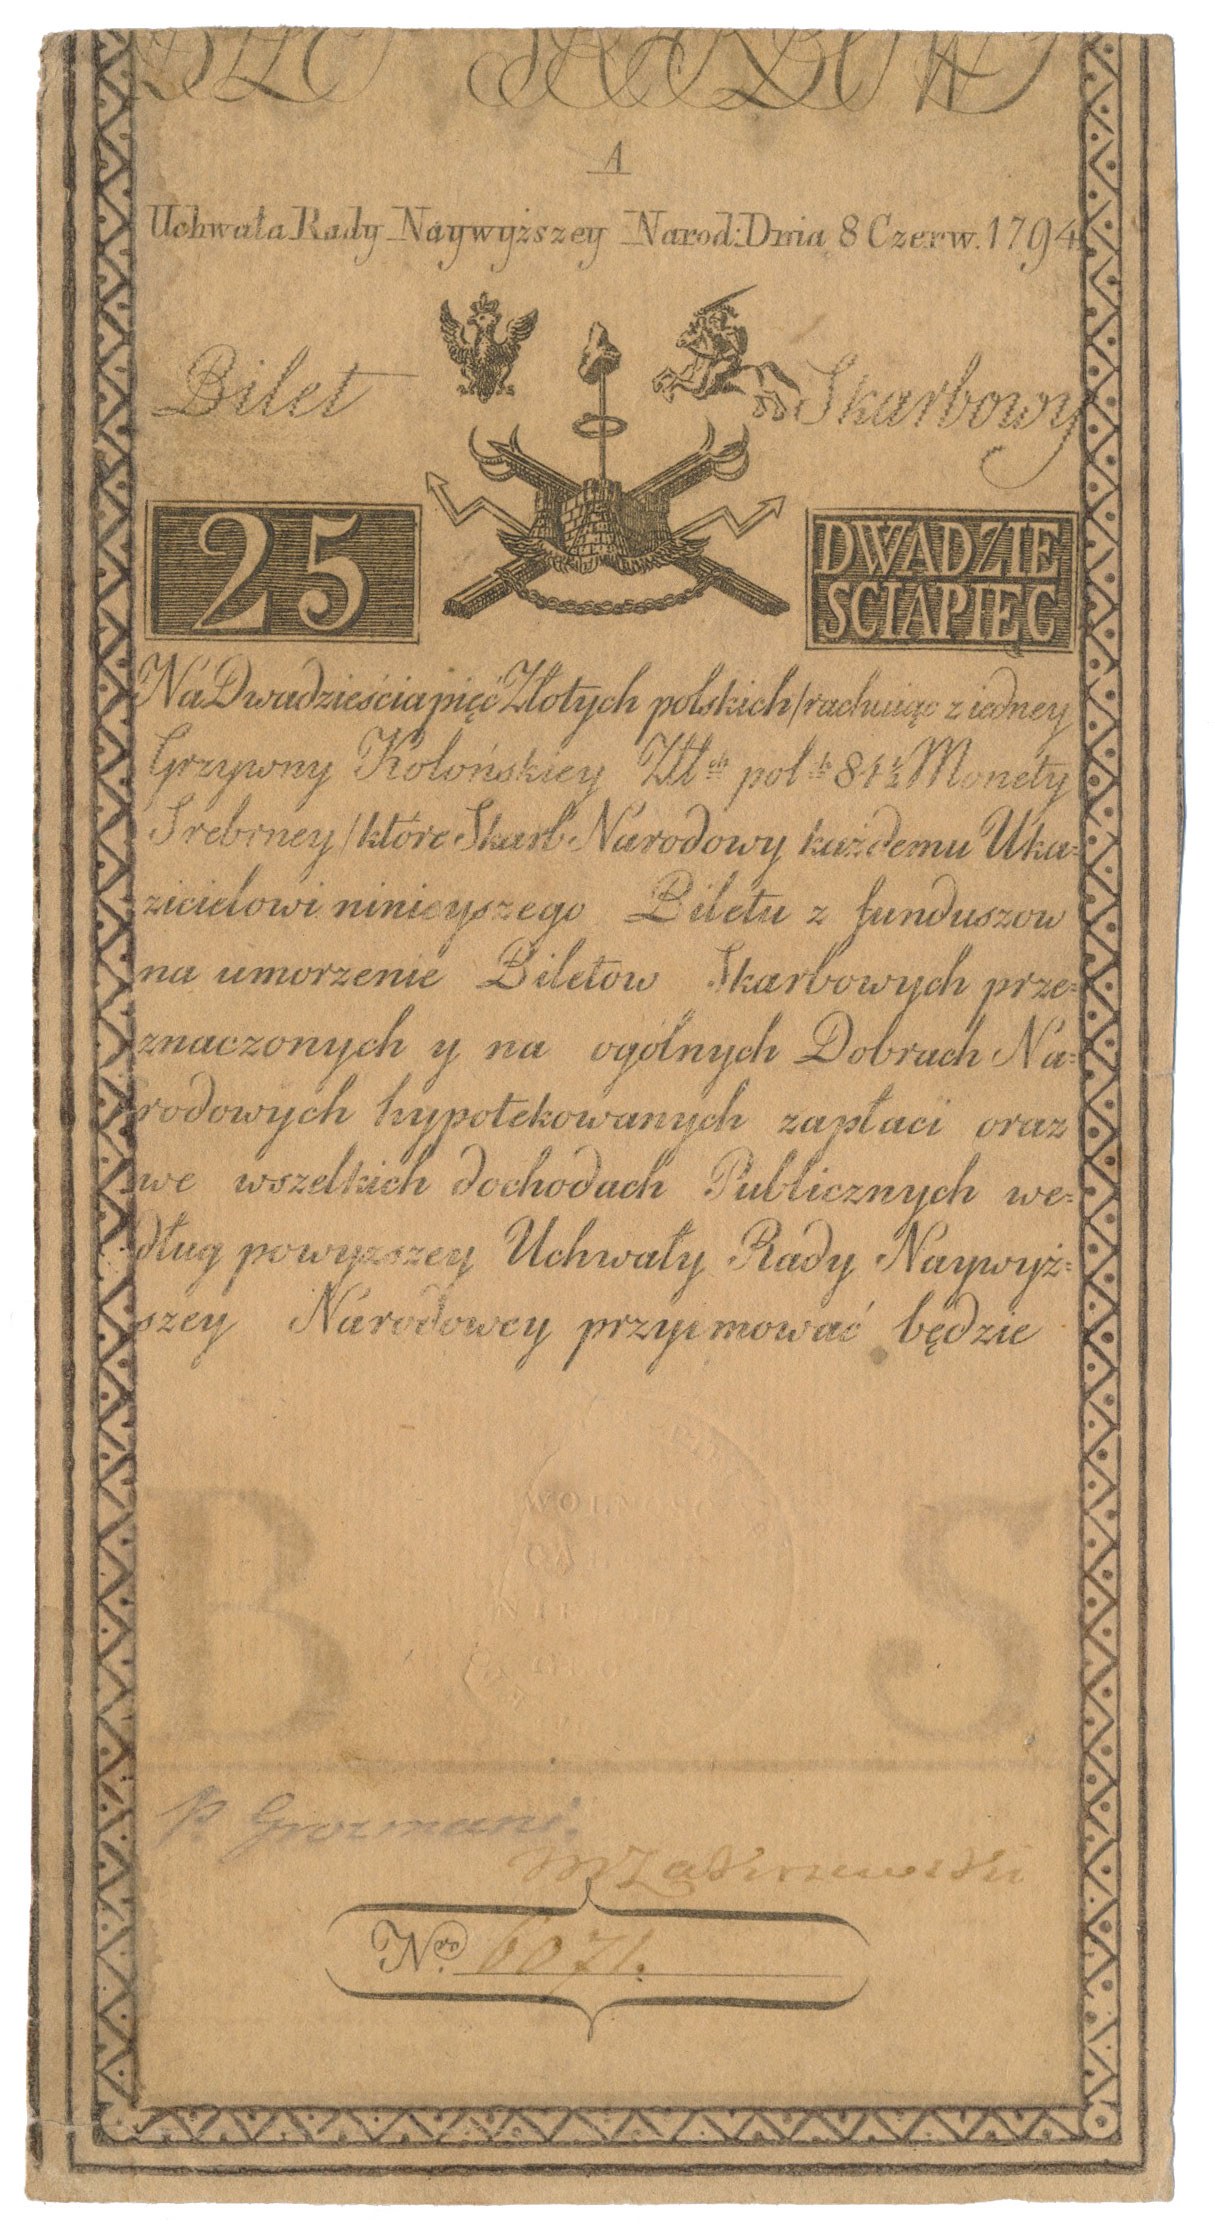 A
Uchwała Rady Naywyższey Narod: Dnia 8 Czerw. 1794
Bilet Skarbowy
25
DWADZIE
SCIAPIEC
Na Dwadzieścia pięć Złotych polskich /rachuiąc z iedney
Grzywny Kolońskiey Złł ch pol k 84½ Monety
Srebrney/ które Skarb Narodowy każdemu Uka=
zicielowi ninieyszego Biletu z funduszow
na umorzenie Biletow Skarbowych prze=
znaczonych y na ogólnych Dobrach Na=
rodowych hypotekowanych zapłaci oraz
we wszelkich dochodach Publicznych we=
dług powyższey Uchwały Rady Naywyż=
szey Narodowey przyimować będzie
B S
P. Grozmani.
M Zakrzewski
Nro. 6071.